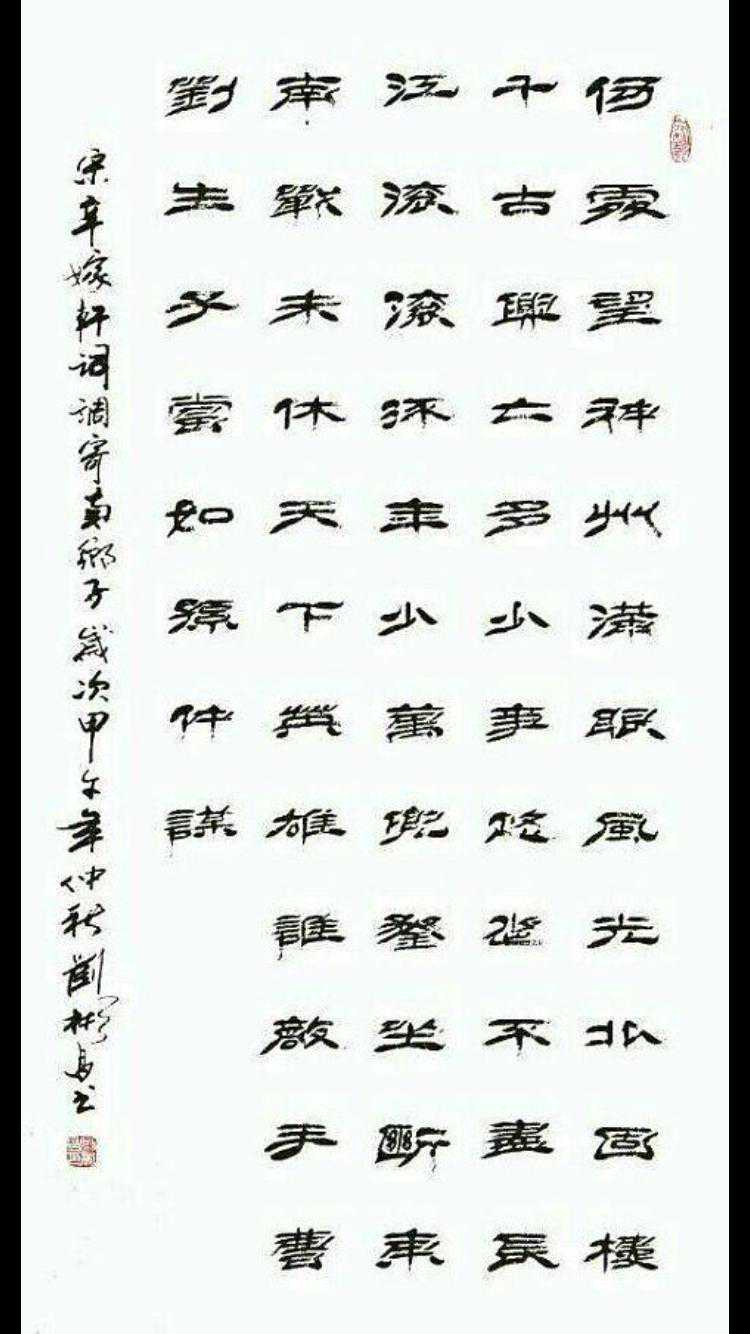 何處望神州滿眼風光北固樓
千古興亡多少事悠悠不盡長
江滾滾流年少萬兜鍪坐斷東
南戰未休天下英雄誰敵手曹
劉生子當如孫仲謀
宋辛稼軒詞調寄南鄉子歲次甲午年仲秋劉彬书